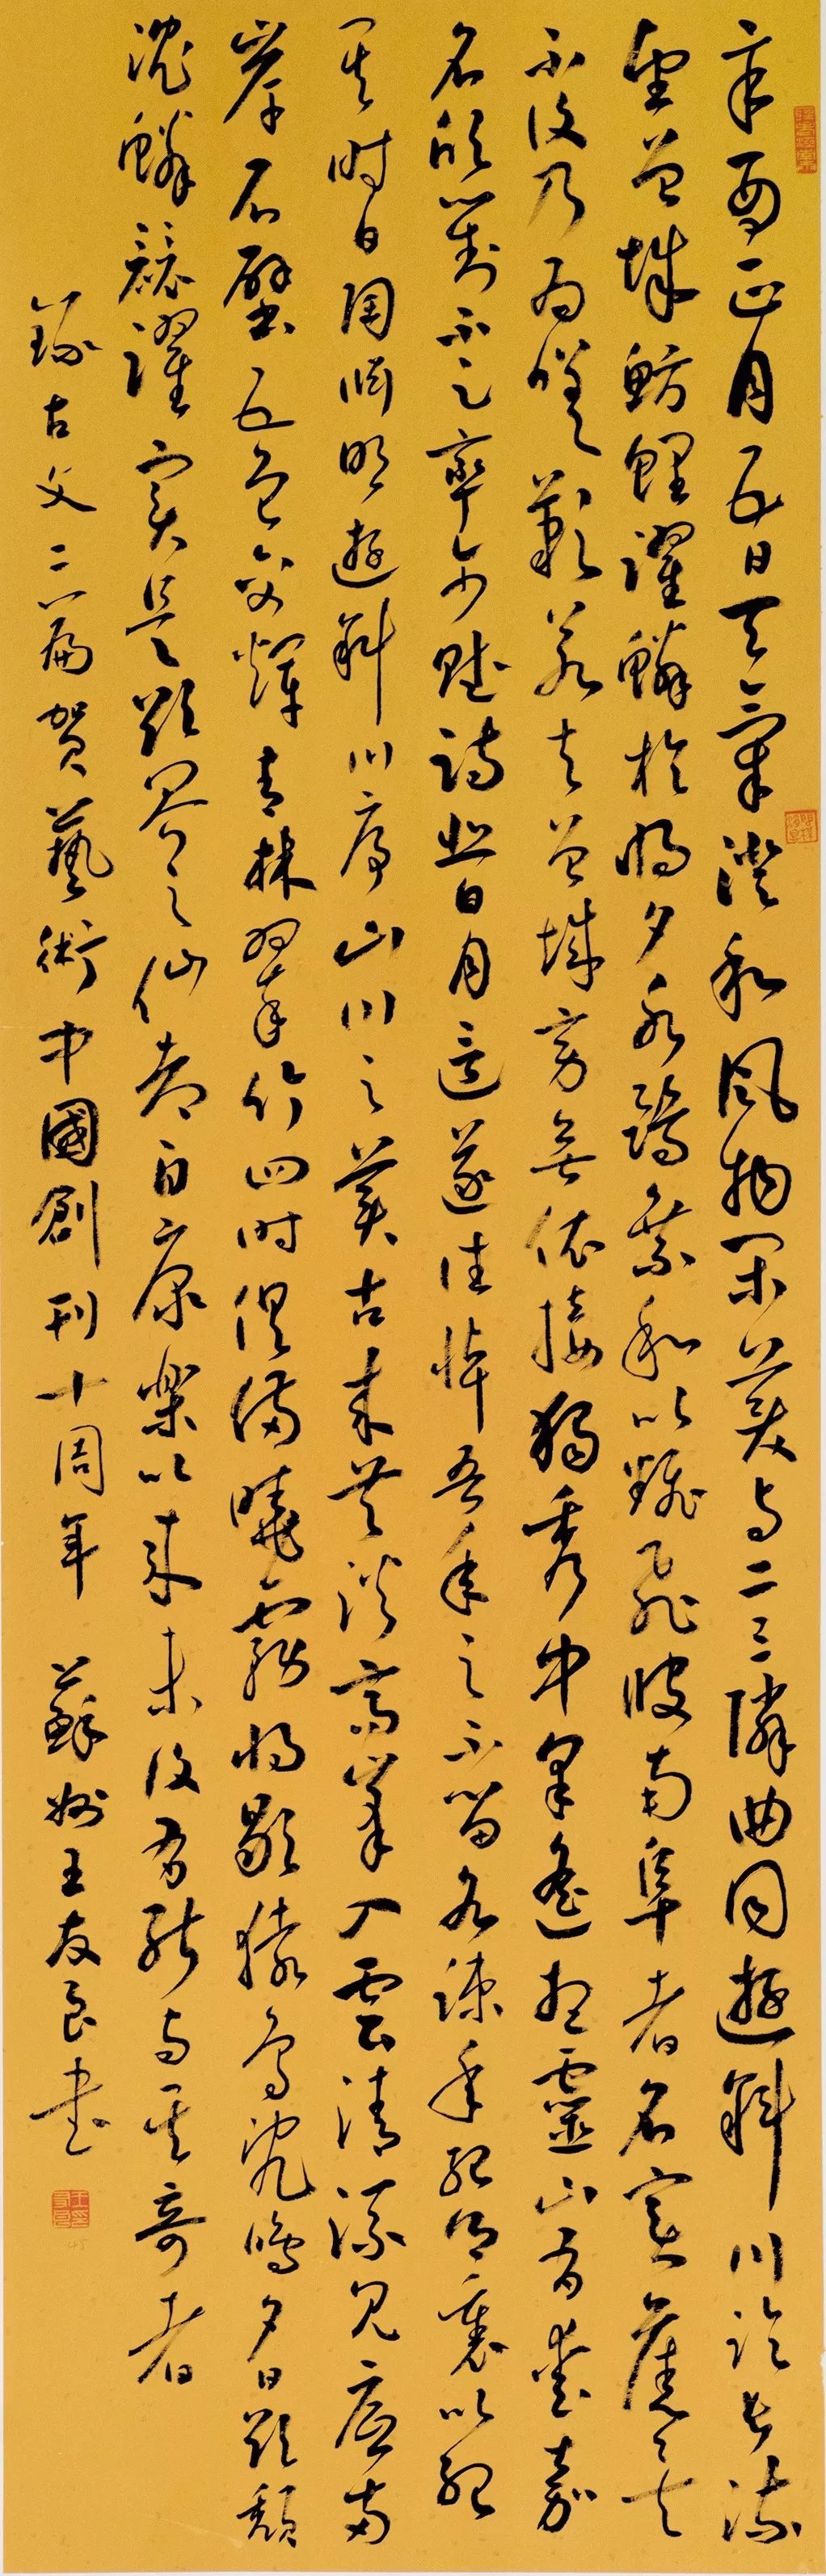 辛酉正月五日天氣澄和風物閑美与二三隣曲同遊斜川臨長流
望曾城魴鯉躍鱗於將夕水鷗乘和以翻飛彼南阜者名實舊矣
不復乃為嗟歎若夫曾城旁無依接獨秀中皋遙想靈山有愛嘉
名欣對不足率尔賦詩悲日月遂往悼吾年之不留各疏年紀鄉里以紀
其時日陶淵明遊斜川序山川之美古來共談高峯入雲清流見底兩
岸石壁五色交輝青林翠竹四時俱備曉霧將歇猿鳥亂鳴夕日欲頹
沉鱗競躍實是欲界之仙都自康樂以來未復有能与其奇者
録古文二篇賀藝術中國創刊十周年 蘇州王友良書